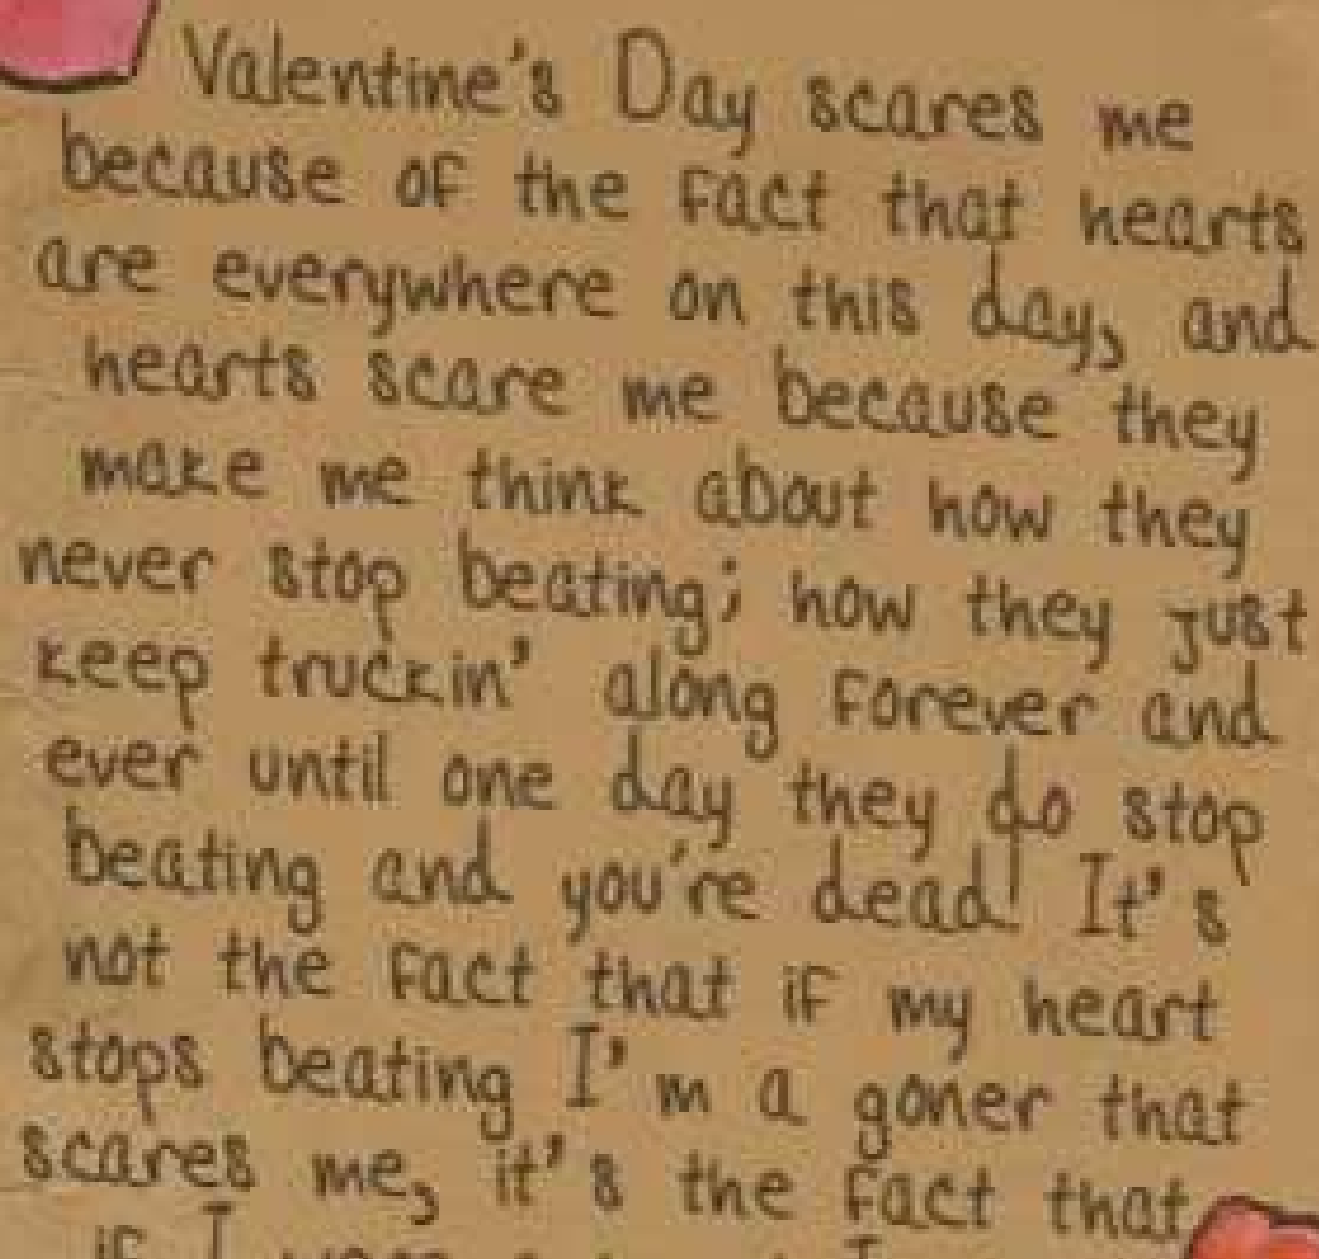 Valentine's Day scares me
because of the fact that hearts
are everywhere on this day, and
hearts scare me because they
make me think about how they
never stop beating; how they just
keep truckin' along forever and
ever until one day they do stop
beating and you're dead! It's
not the fact that if my heart
stops beating I'm a goner that
scares me, it's the fact that
if I